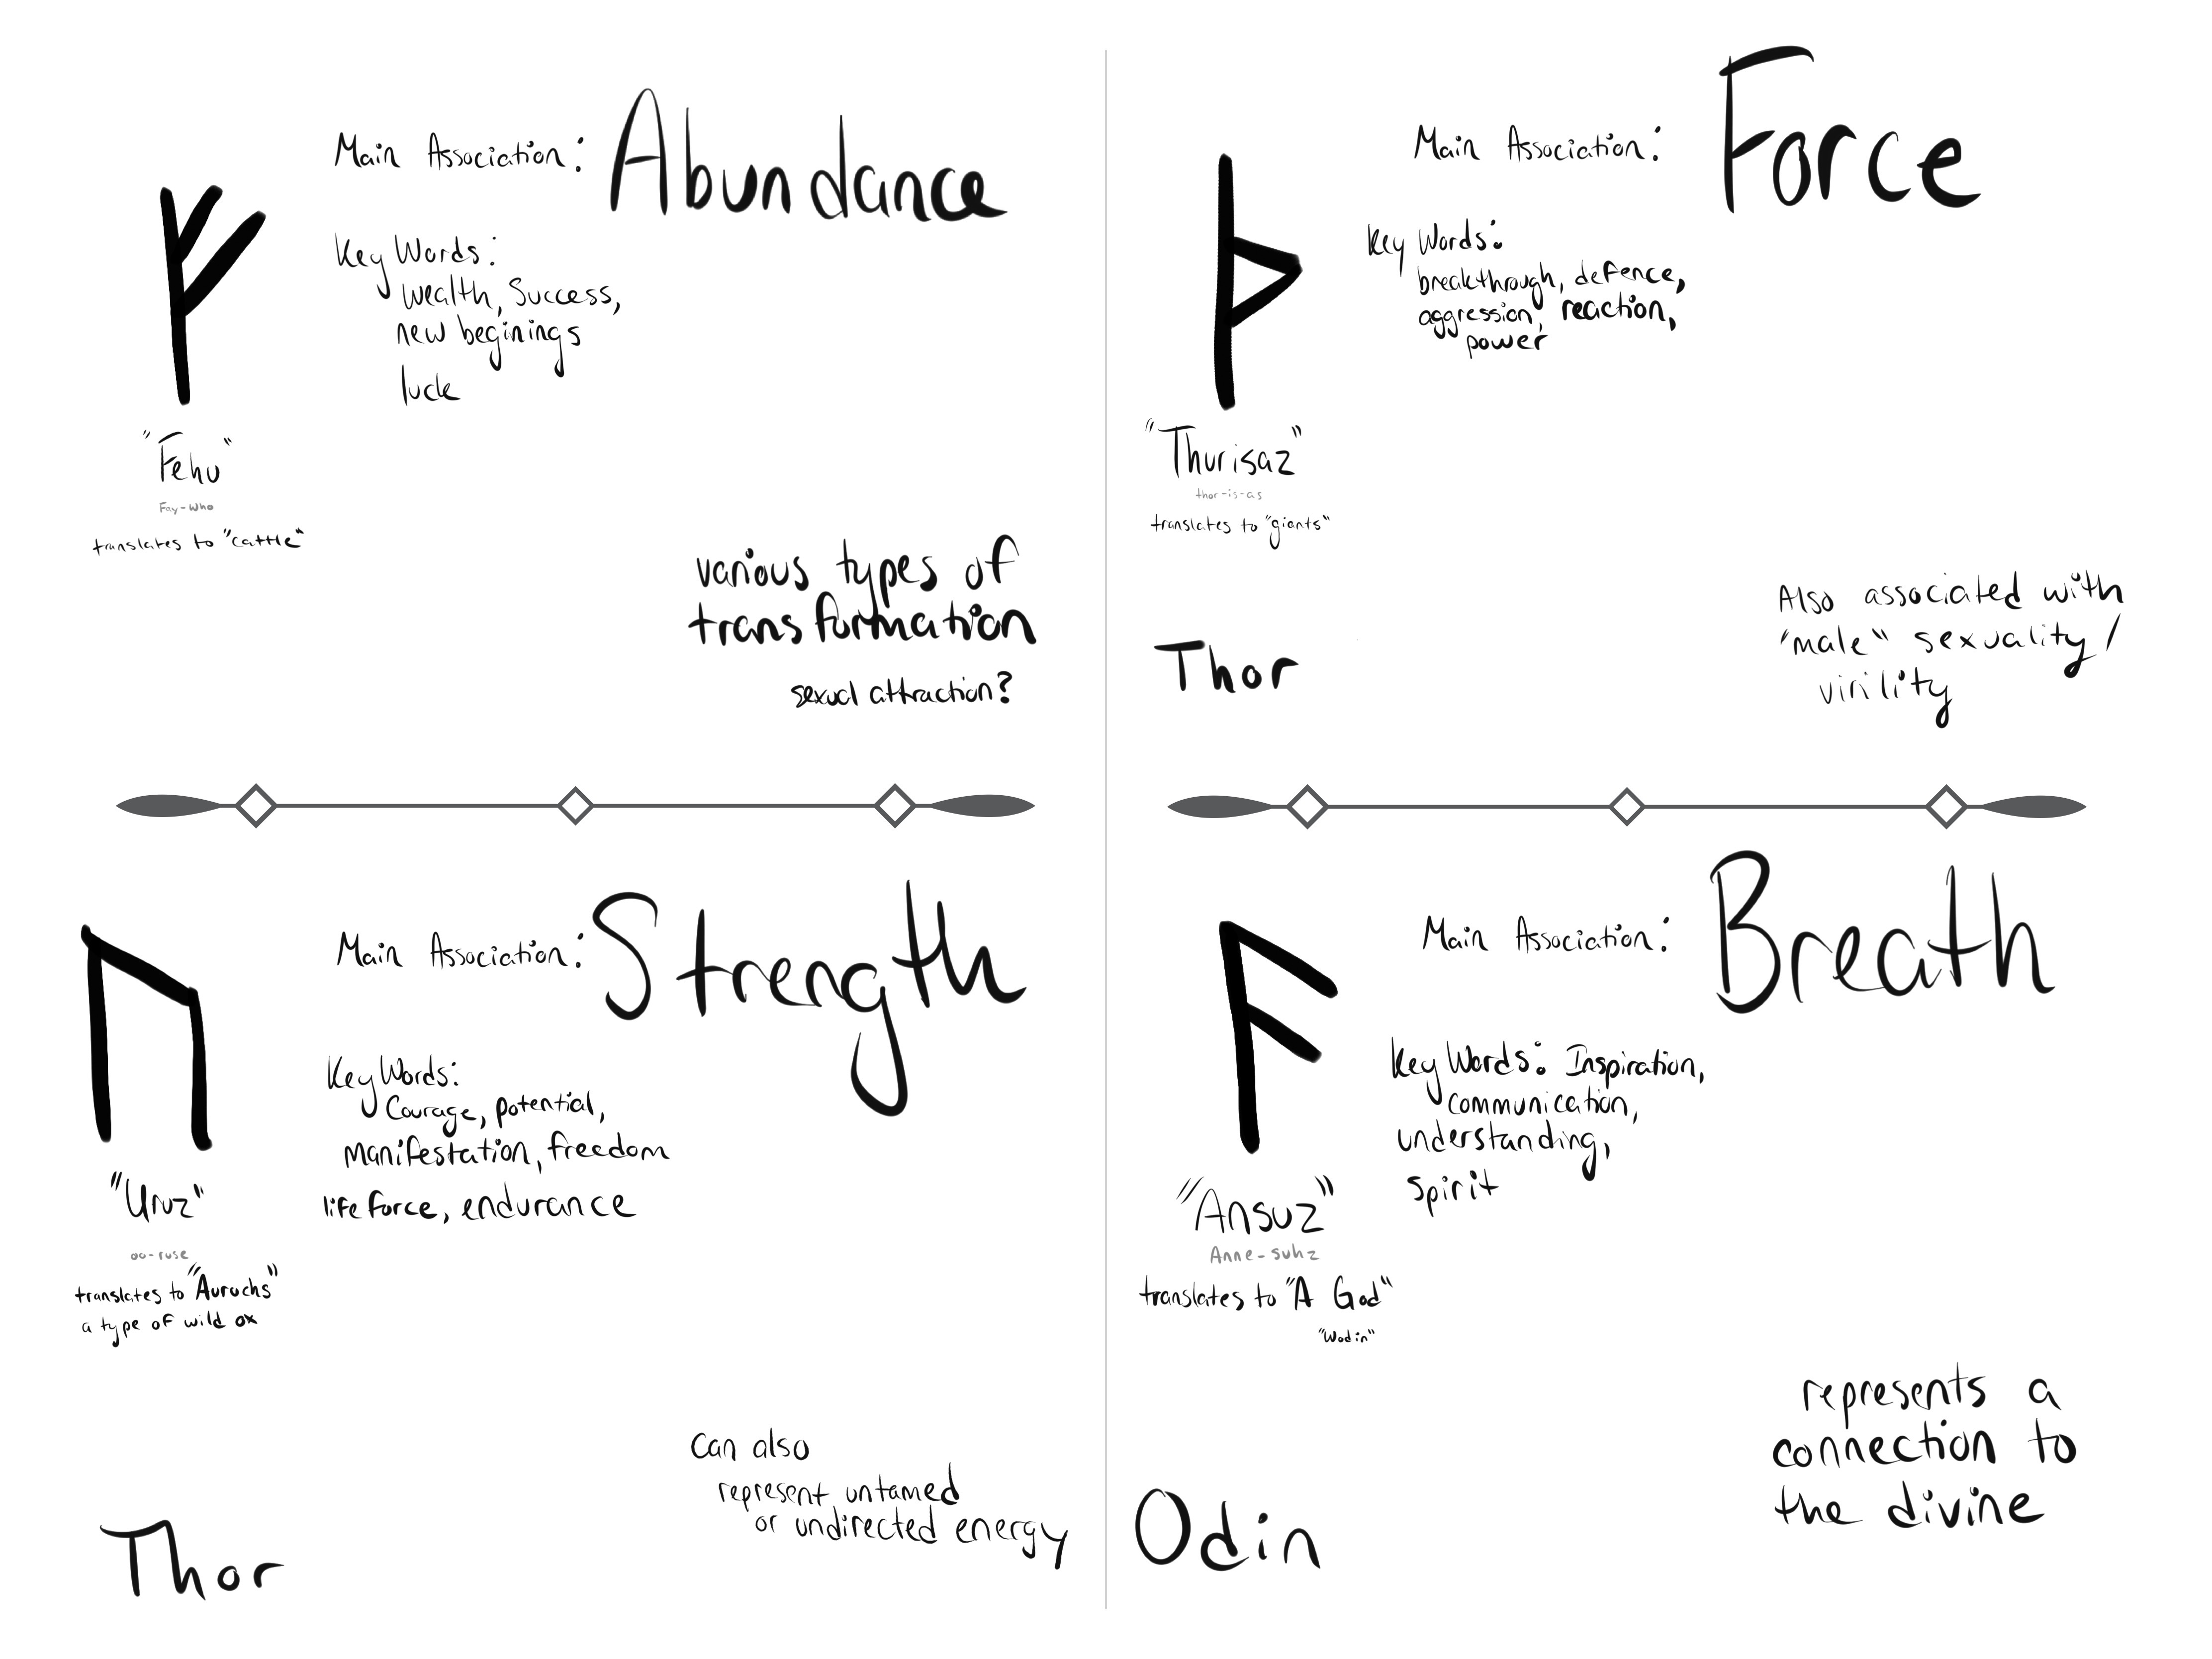 Main Association: Abundance
Key Words:
wealth, Success,
new beginings
luck
"Fehu"
Fay-who
translates to "cattle"
various types of
transformation
sexual attraction?
Main Association: Force
Key Words:
breakthrough, defence,
aggression, reaction,
power
"Thurisaz"
thor-is-as
translates to "giants"
Thor
Also associated with
"male" sexuality/
virility
Main Association: Strength
Key Words:
Courage, potential,
manifestation, freedom
life force, endurance
"Uruz"
oo-ruse
translates to "Aurochs"
a type of wild ox
Can also
represent untamed
or undirected energy
Thor
Main Association: Breath
Key Words: Inspiration,
communication,
understanding,
spirit
"Ansuz"
Anne-suhz
translates to "A God"
"Wodin"
represents a
connection to
the divine
Odin